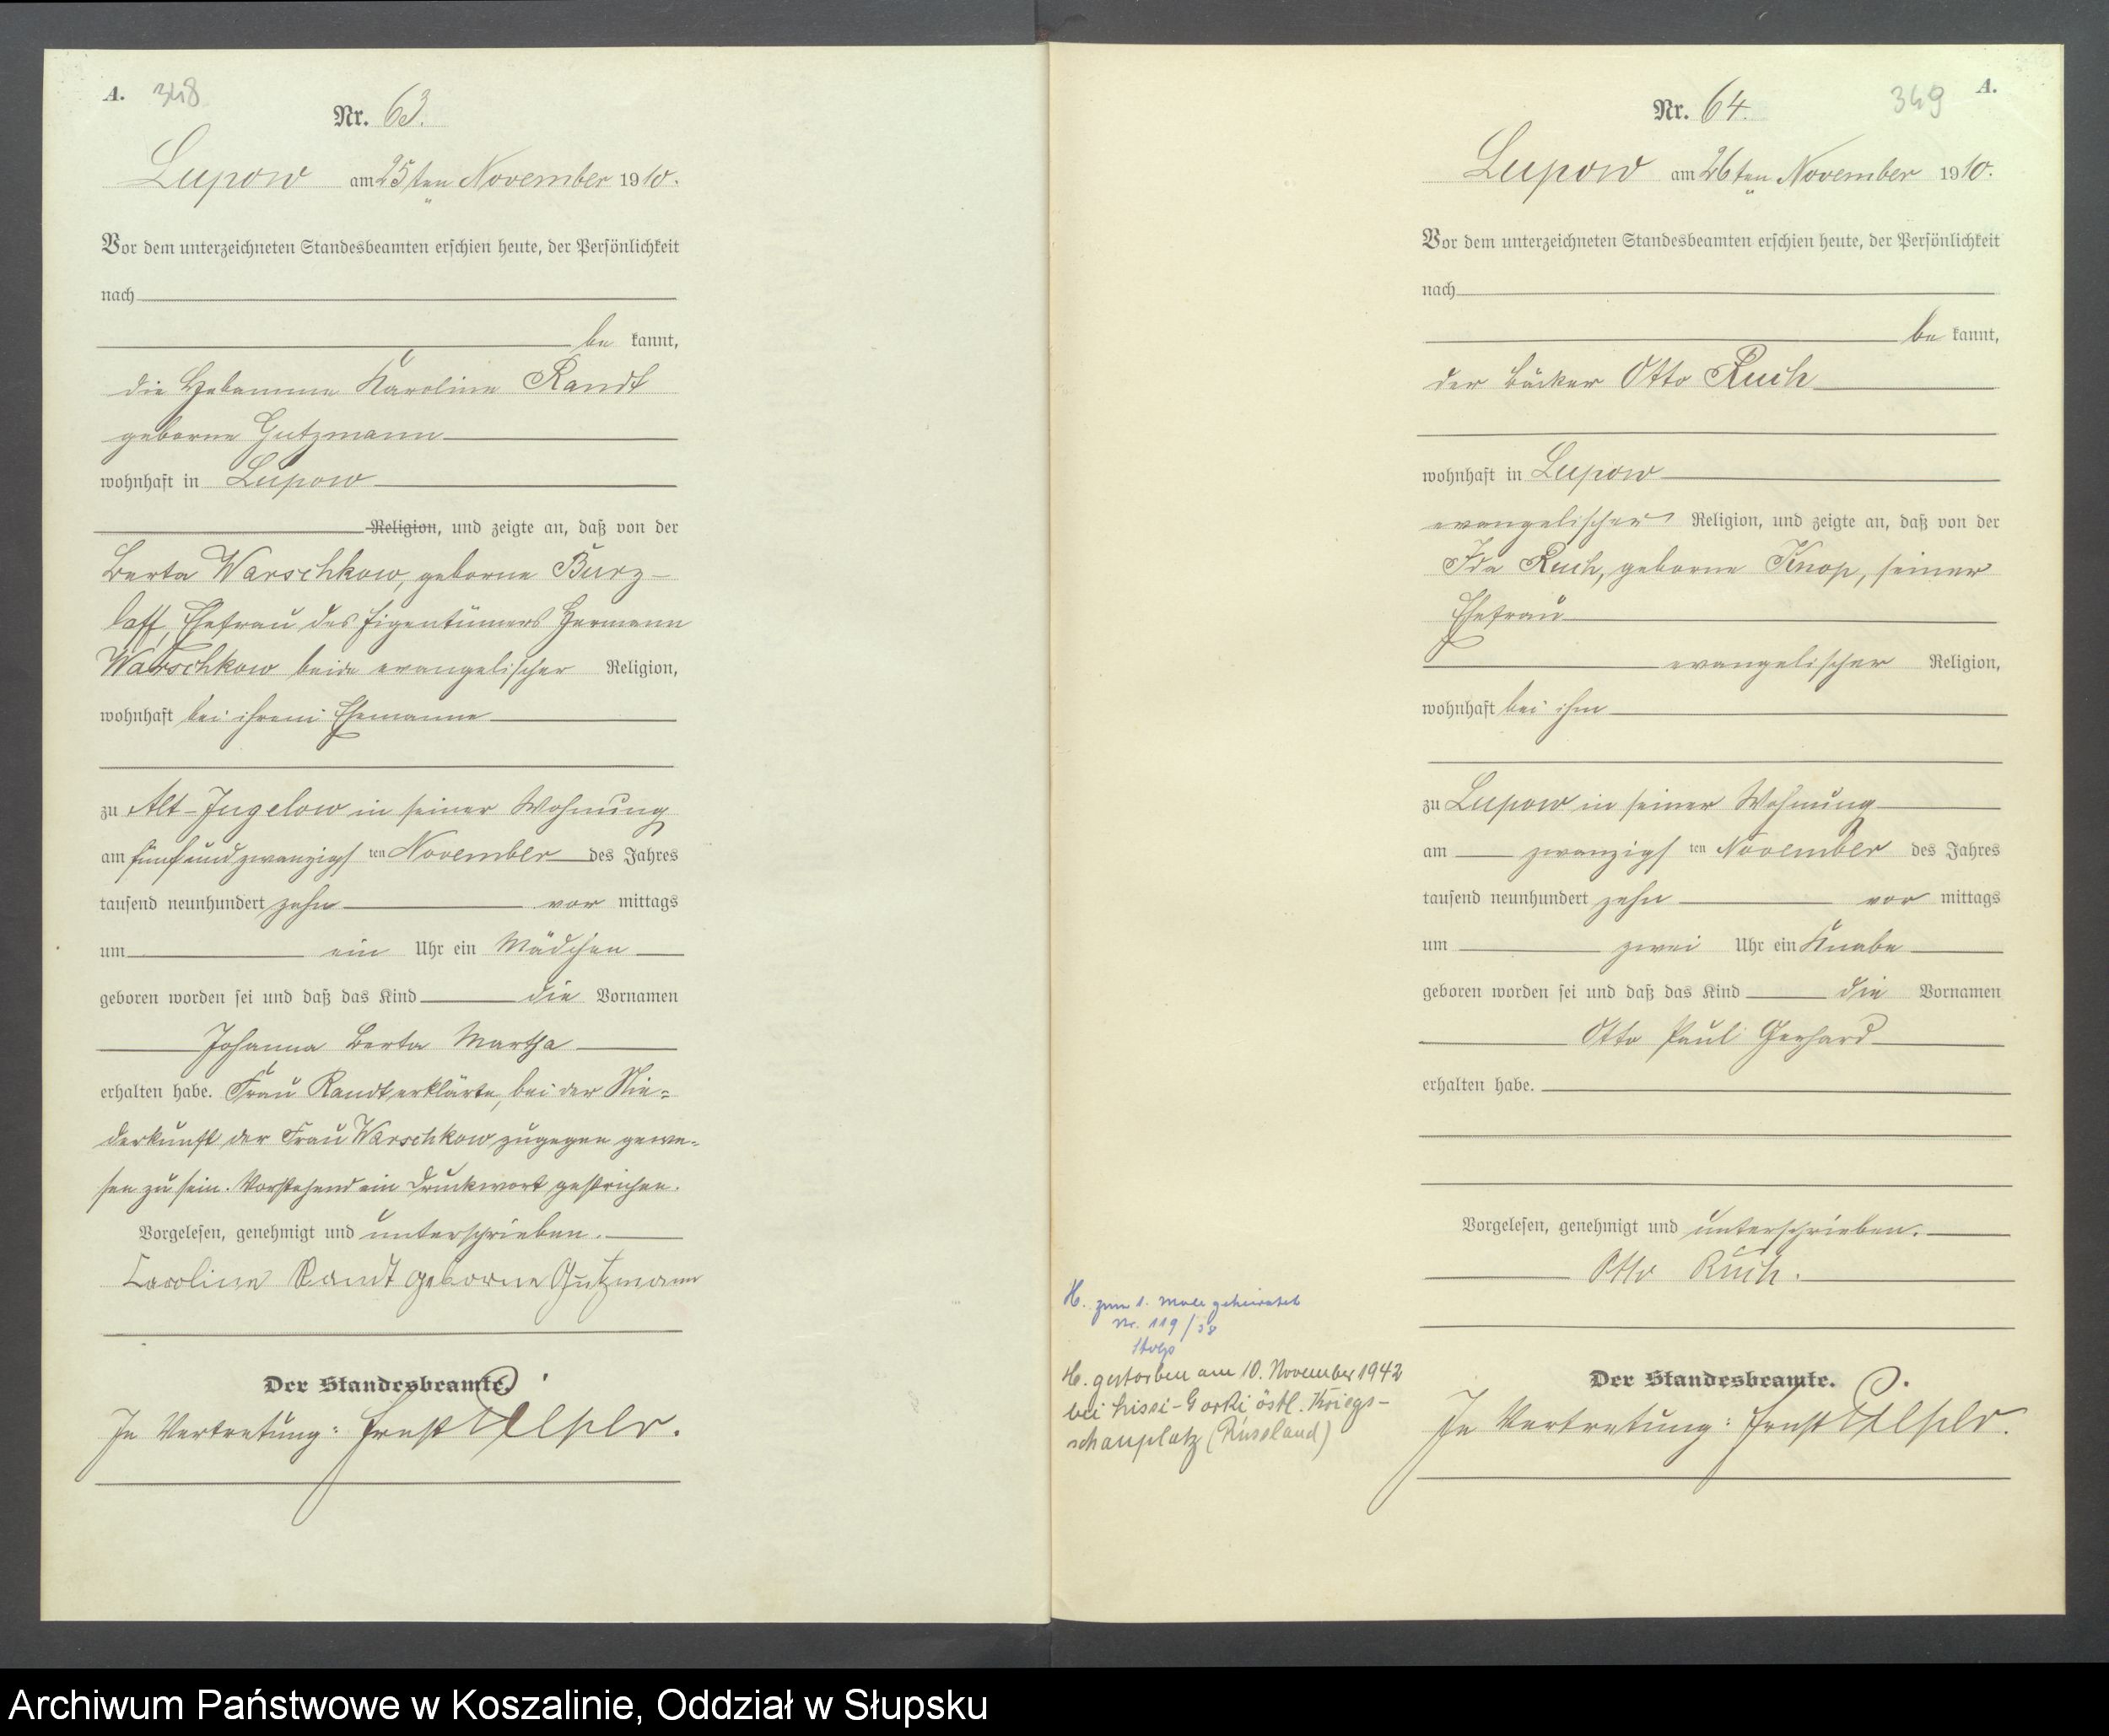 A. 348
Nr. 63.
Lupow am 25ten November 1910.
Vor dem unterzeichneten Standesbeamten erschien heute, der Persönlichkeit
nach
be kannt,
die Hebamme Karoline Randt
geborne Gutzmann
wohnhaft in Lupow
Religion, und zeigte an, daß von der
Berta Warschkow, geborne Burz-
laff, Ehefrau des Eigentümers Hermann
Warschkow beide evangelischer Religion,
wohnhaft bei ihrem Ehemanne
zu Alt-Jugelow in seiner Wohnung
am fünfundzwanzigs ten November des Jahres
tausend neunhundert zehn vor mittags
um ein Uhr ein Mädchen
geboren worden sei und daß das Kind die Vornamen
Johanna Berta Martha
erhalten habe. Frau Randt erklärte, bei der Nie=
derkunft der Frau Warschkow zugegen gewe-
sen zu sein. Vorstehend ein Druckwort gestrichen.
Vorgelesen, genehmigt und unterschrieben.
Caroline Randt geborne Gutzmann
Der Standesbeamte.
In Vertretung: Ernst
A.
349
Nr. 64.
Lupow am 26ten November 1910.
Vor dem unterzeichneten Standesbeamten erschien heute, der Persönlichkeit
nach
be kannt,
der Bäcker Otto Ruch
wohnhaft in Lupow
evangelischer Religion, und zeigte an, daß von der
Ida Ruch, geborne Knop, seiner
Ehefrau
evangelischer Religion,
wohnhaft bei ihm
zu Lupow in seiner Wohnung
am zwanzigs ten November des Jahres
tausend neunhundert zehn vor mittags
um zwei Uhr ein Knabe
geboren worden sei und daß das Kind die Vornamen
Otto Paul Gerhard
erhalten habe.
Vorgelesen, genehmigt und unterschrieben.
Otto Ruch.
Der Standesbeamte.
In Vertretung: Ernst
H. zum 1. Male geheiratet
Nr. 119/38
Stolp
H. gestorben am 10. November 1942
bei Lissi-Gorki östl. Kriegs-
schauplatz (Russland)
Archiwum Państwowe w Koszalinie, Oddział w Słupsku